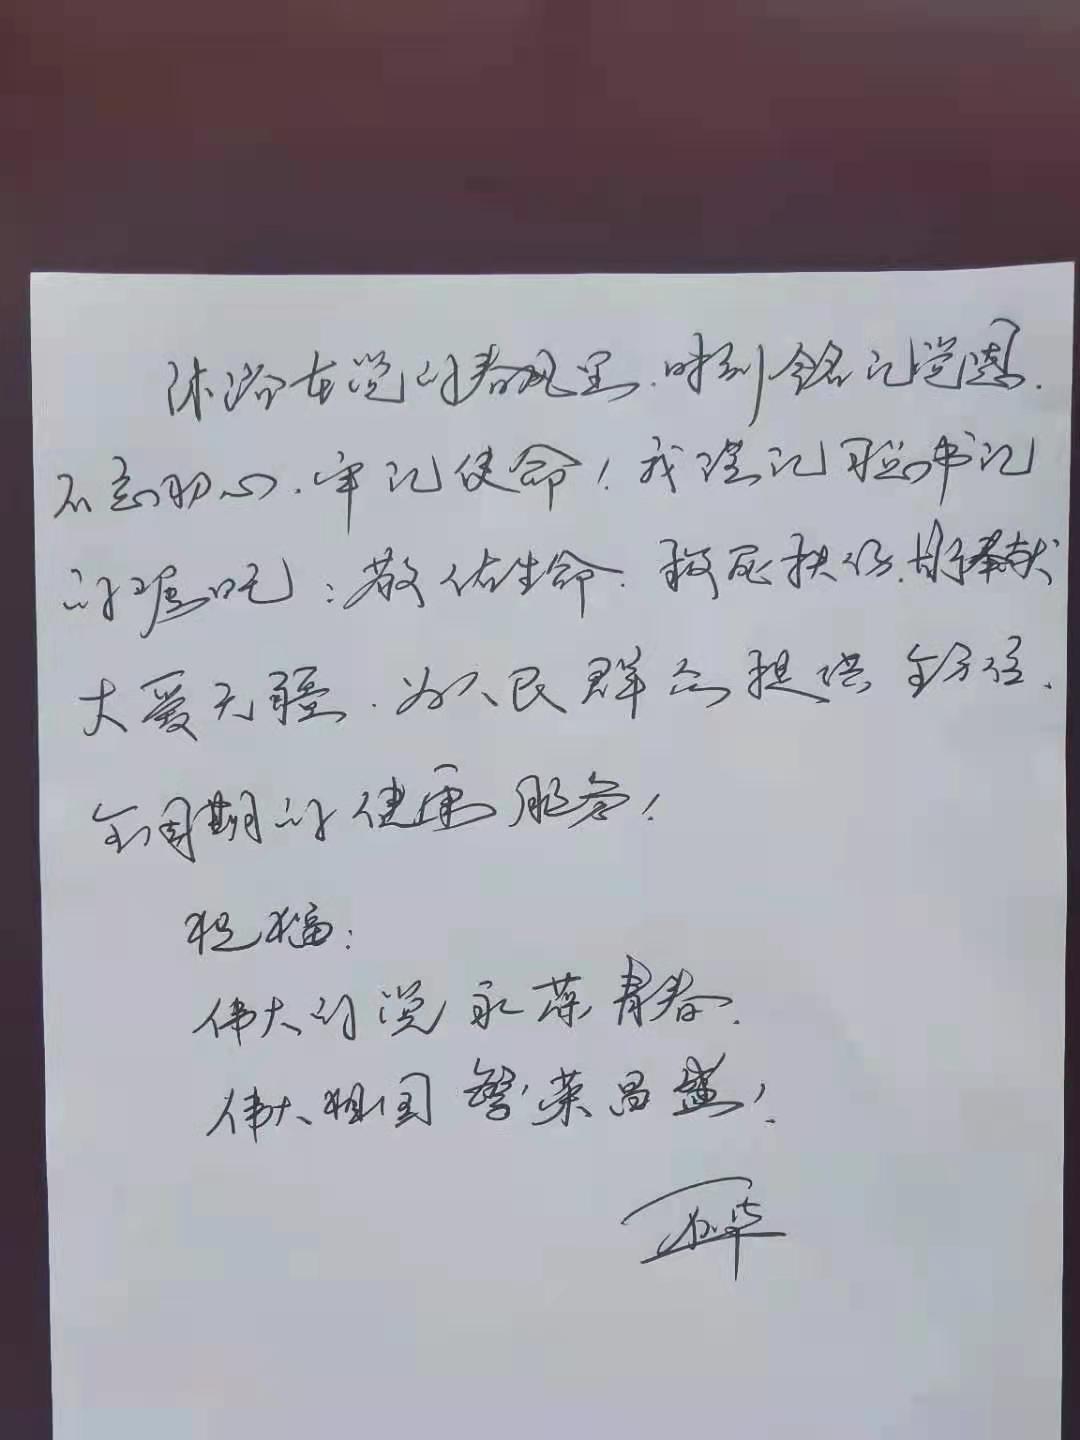 沐浴在党的春风里,时刻铭记党恩.
不忘初心.牢记使命!我谨记习总书记
的嘱咐:敬佑生命.救死扶伤.甘于奉献
大爱无疆.为人民群众提供全方位.
全周期的健康服务!
祝福:
伟大的党永葆青春.
伟大祖国繁荣昌盛!